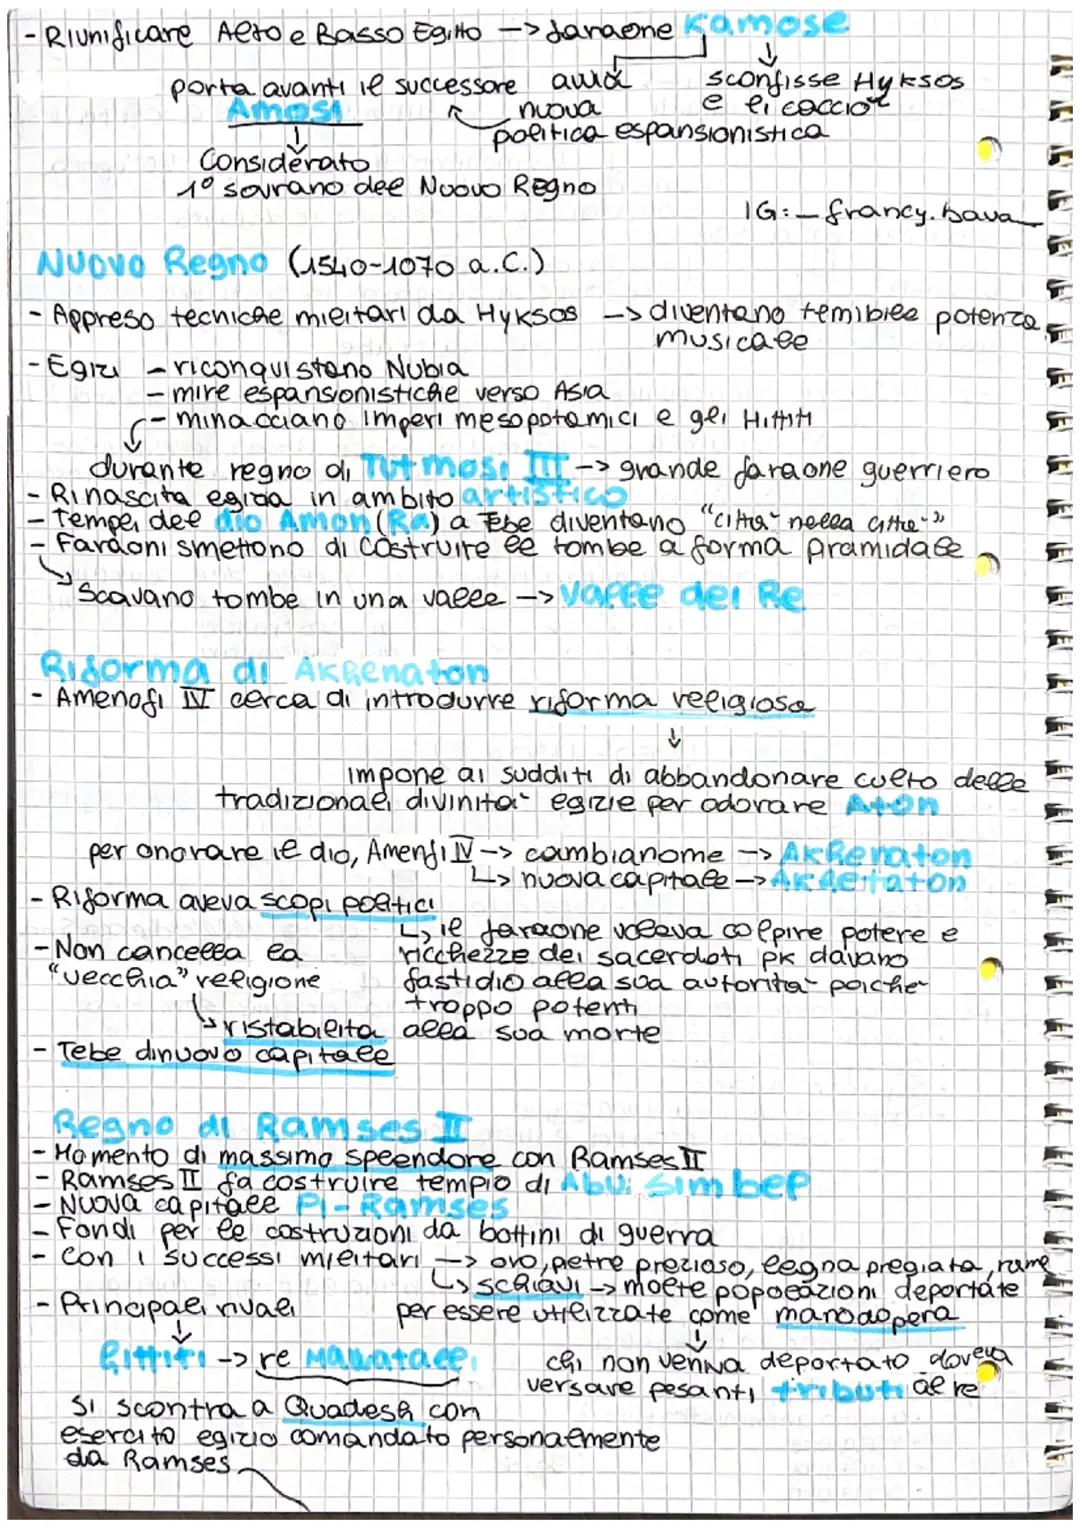 - Riunificare Alto e Basso Egitto -> faraone Kamose
porta avanti il successore avvia sconfisse Hyksos
Amosi nuova e li cacciò
politica espansionistica
Considerato
1° sovrano del Nuovo Regno
IG:_francy.bava_
Nuovo Regno (1540-1070 a.C.)
- Appreso tecniche militari da Hyksos -> diventano temibile potenza
musicale
- Egizi - riconquistano Nubia
- mire espansionistiche verso Asia
- minacciano imperi mesopotamici e gli Hittiti
durante regno di Tutmosi III -> grande faraone guerriero
- Rinascita egizia in ambito artistico
- Templi del dio Amon (Ra) a Tebe diventano "città nella città"
- Faraoni smettono di costruire le tombe a forma piramidale
Scavano tombe in una valle -> Valle dei Re
Riforma di Akhenaton
- Amenofi IV cerca di introdurre riforma religiosa
impone ai sudditi di abbandonare culto delle
tradizionali divinità egizie per adorare Aton
per onorare il dio, Amenfi IV -> cambianome -> Akhenaton
nuova capitale -> Akhetaton
- Riforma aveva scopi politici
il faraone voleva colpire potere e
- Non cancella la ricchezze dei sacerdoti pk davano
"vecchia" religione fastidio alla sua autorità poiché
troppo potenti
ristabilita alla sua morte
- Tebe dinuovo capitale
Regno di Ramses II
- Momento di massimo splendore con Ramses II
- Ramses II fa costruire tempio di Abu Simbel
- Nuova capitale Pi-Ramses
- Fondi per le costruzioni da bottini di guerra
- Con i successi militari -> oro, petre prezioso, legna pregiata, rame
schiavi -> molte popolazioni deportate
- Principali rivali per essere utilizzate come manodopera
hittiti -> re Muwatalli chi non veniva deportato doveva
versare pesanti tributi al re
Si scontra a Quadesh con
esercito egizio comandato personalmente
da Ramses